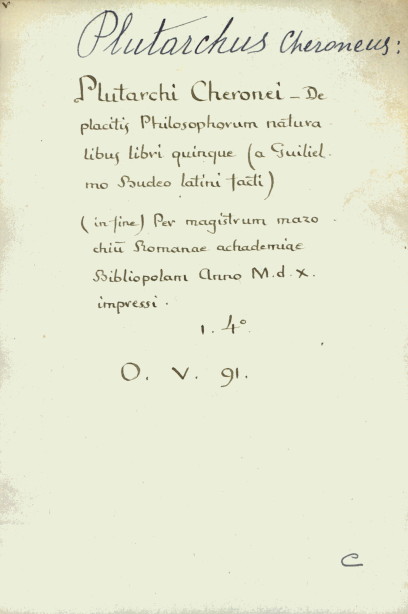 Plutarchus Cheroneus:
Plutarchi Cheronei - De
placitis Philosophorum natura
libus libri quinque (a Guiliel
mo Budeo latini facti)
(in fine) Per magistrum mazo
chiū Romanae achademiae
Bibliopolam Anno M.d.x.
impressi.
1. 4°
O. V. 91.
C